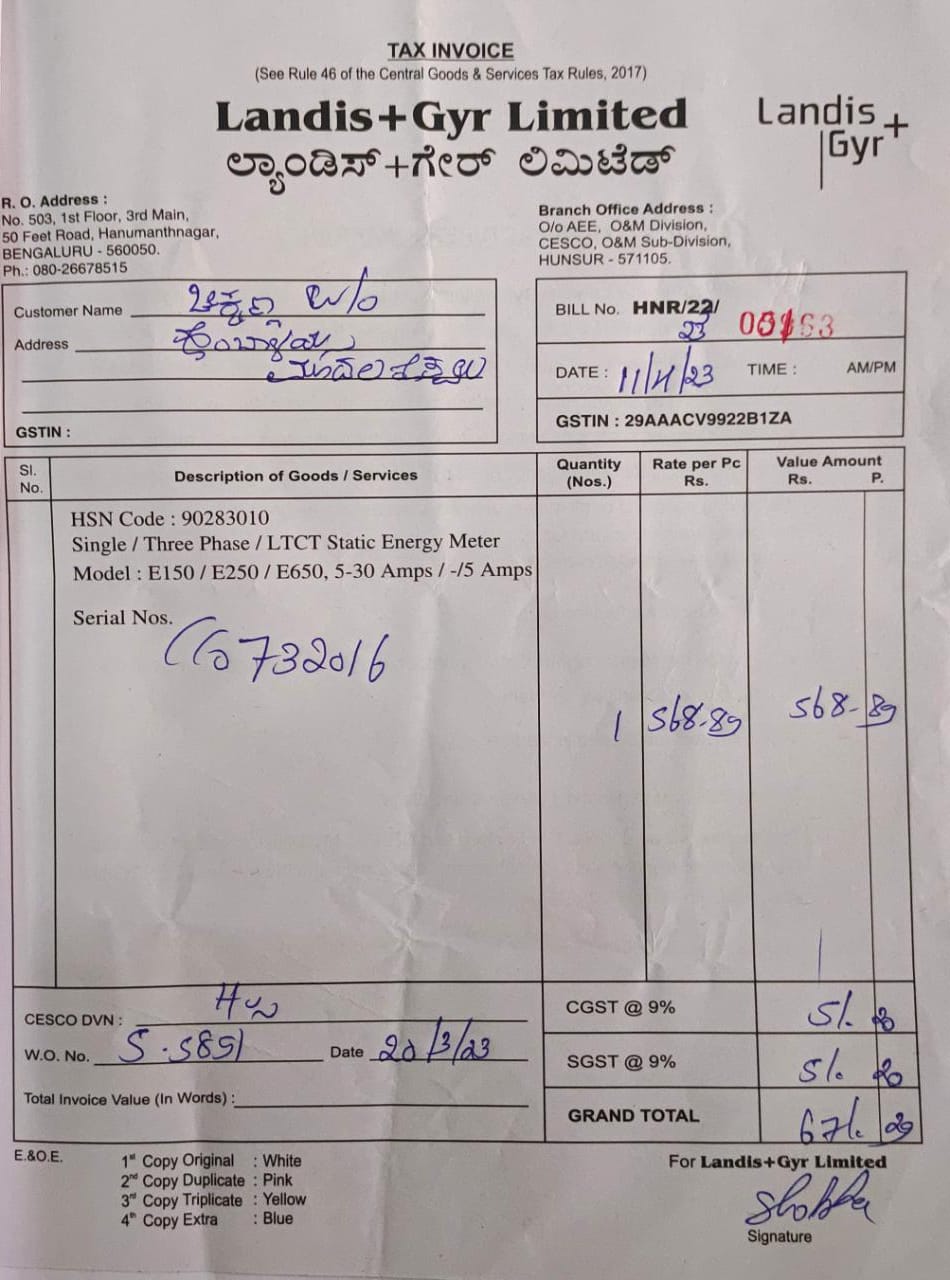 TAX INVOICE
(See Rule 46 of the Central Goods & Services Tax Rules, 2017)
Landis+Gyr Limited
ಲ್ಯಾಂಡಿಸ್+ಗೇರ್ ಲಿಮಿಟೆಡ್
Landis+
Gyr
R. O. Address :
No. 503, 1st Floor, 3rd Main,
50 Feet Road, Hanumanthnagar,
BENGALURU - 560050.
Ph.: 080-26678515
Branch Office Address :
O/o AEE, O&M Division,
CESCO, O&M Sub-Division,
HUNSUR - 571105.
Customer Name
Address
GSTIN :
BILL No. HNR/22/
23
DATE : 11/4/23 TIME : AM/PM
GSTIN : 29AAACV9922B1ZA
Sl. No. Description of Goods / Services Quantity (Nos.) Rate per Pc Rs. Value Amount Rs. P.
HSN Code : 90283010
Single / Three Phase / LTCT Static Energy Meter
Model : E150 / E250 / E650, 5-30 Amps / -/5 Amps
Serial Nos.
732016
1 568-89 568-89
CESCO DVN :
CGST @ 9% 51. 20
W.O. No. S-5851 Date 20/3/23
SGST @ 9% 51. 20
Total Invoice Value (In Words) :
GRAND TOTAL 671. 29
E.&O.E.
1st Copy Original : White
2nd Copy Duplicate : Pink
3rd Copy Triplicate : Yellow
4th Copy Extra : Blue
For Landis+Gyr Limited
Shobha
Signature